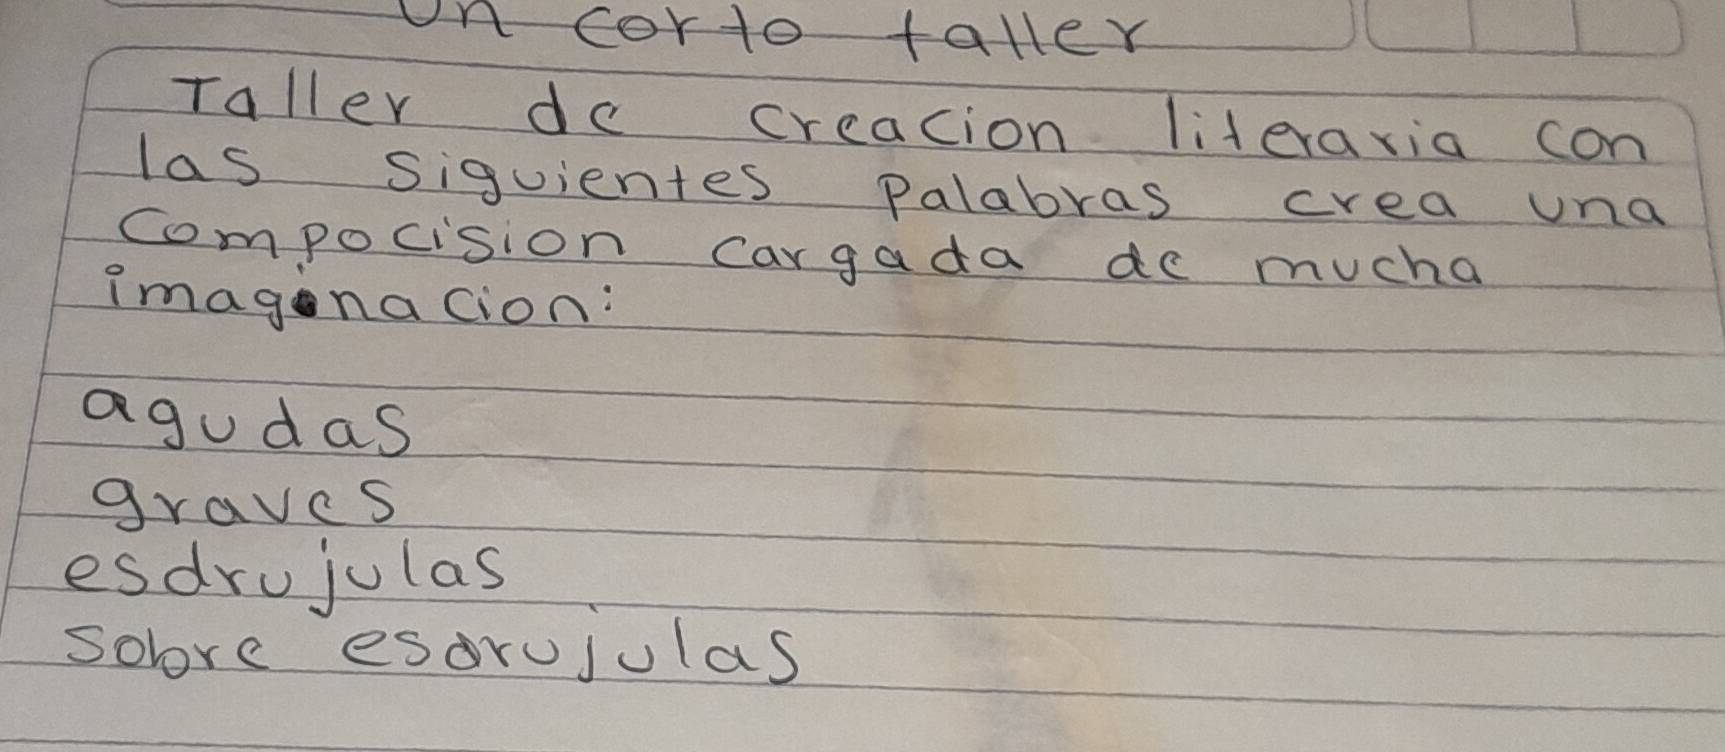 Un corto taller
Taller de creacion literaria con
las siguientes palabras crea una
compocision cargada de mucha
imaginacion:
agudas
graves
esdrujulas
sobre esdrujulas